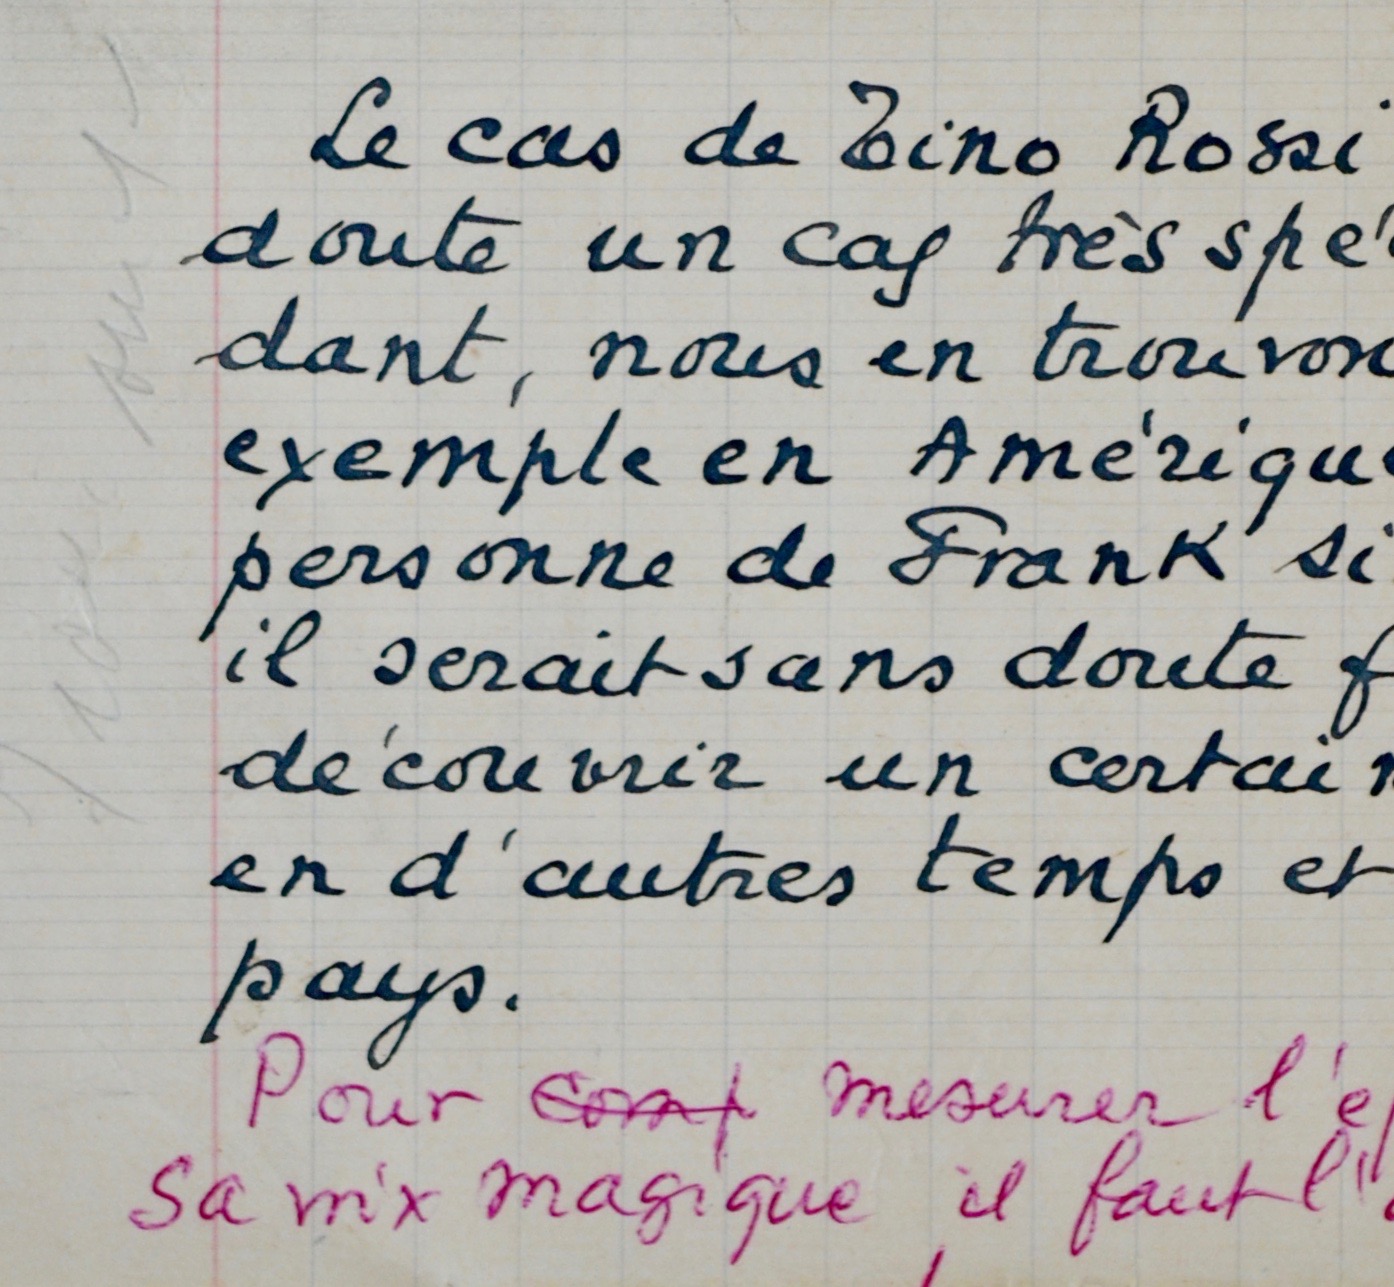 Le cas de Tino Rossi
doute un cas très spé
dant, nous en trouvon
exemple en Amérique
personne de Frank Si
il serait sans doute f
découvrir un certain
en d'autres temps et
pays.
Pour comp mesurer l'ef
Sa voix magique il faut l'